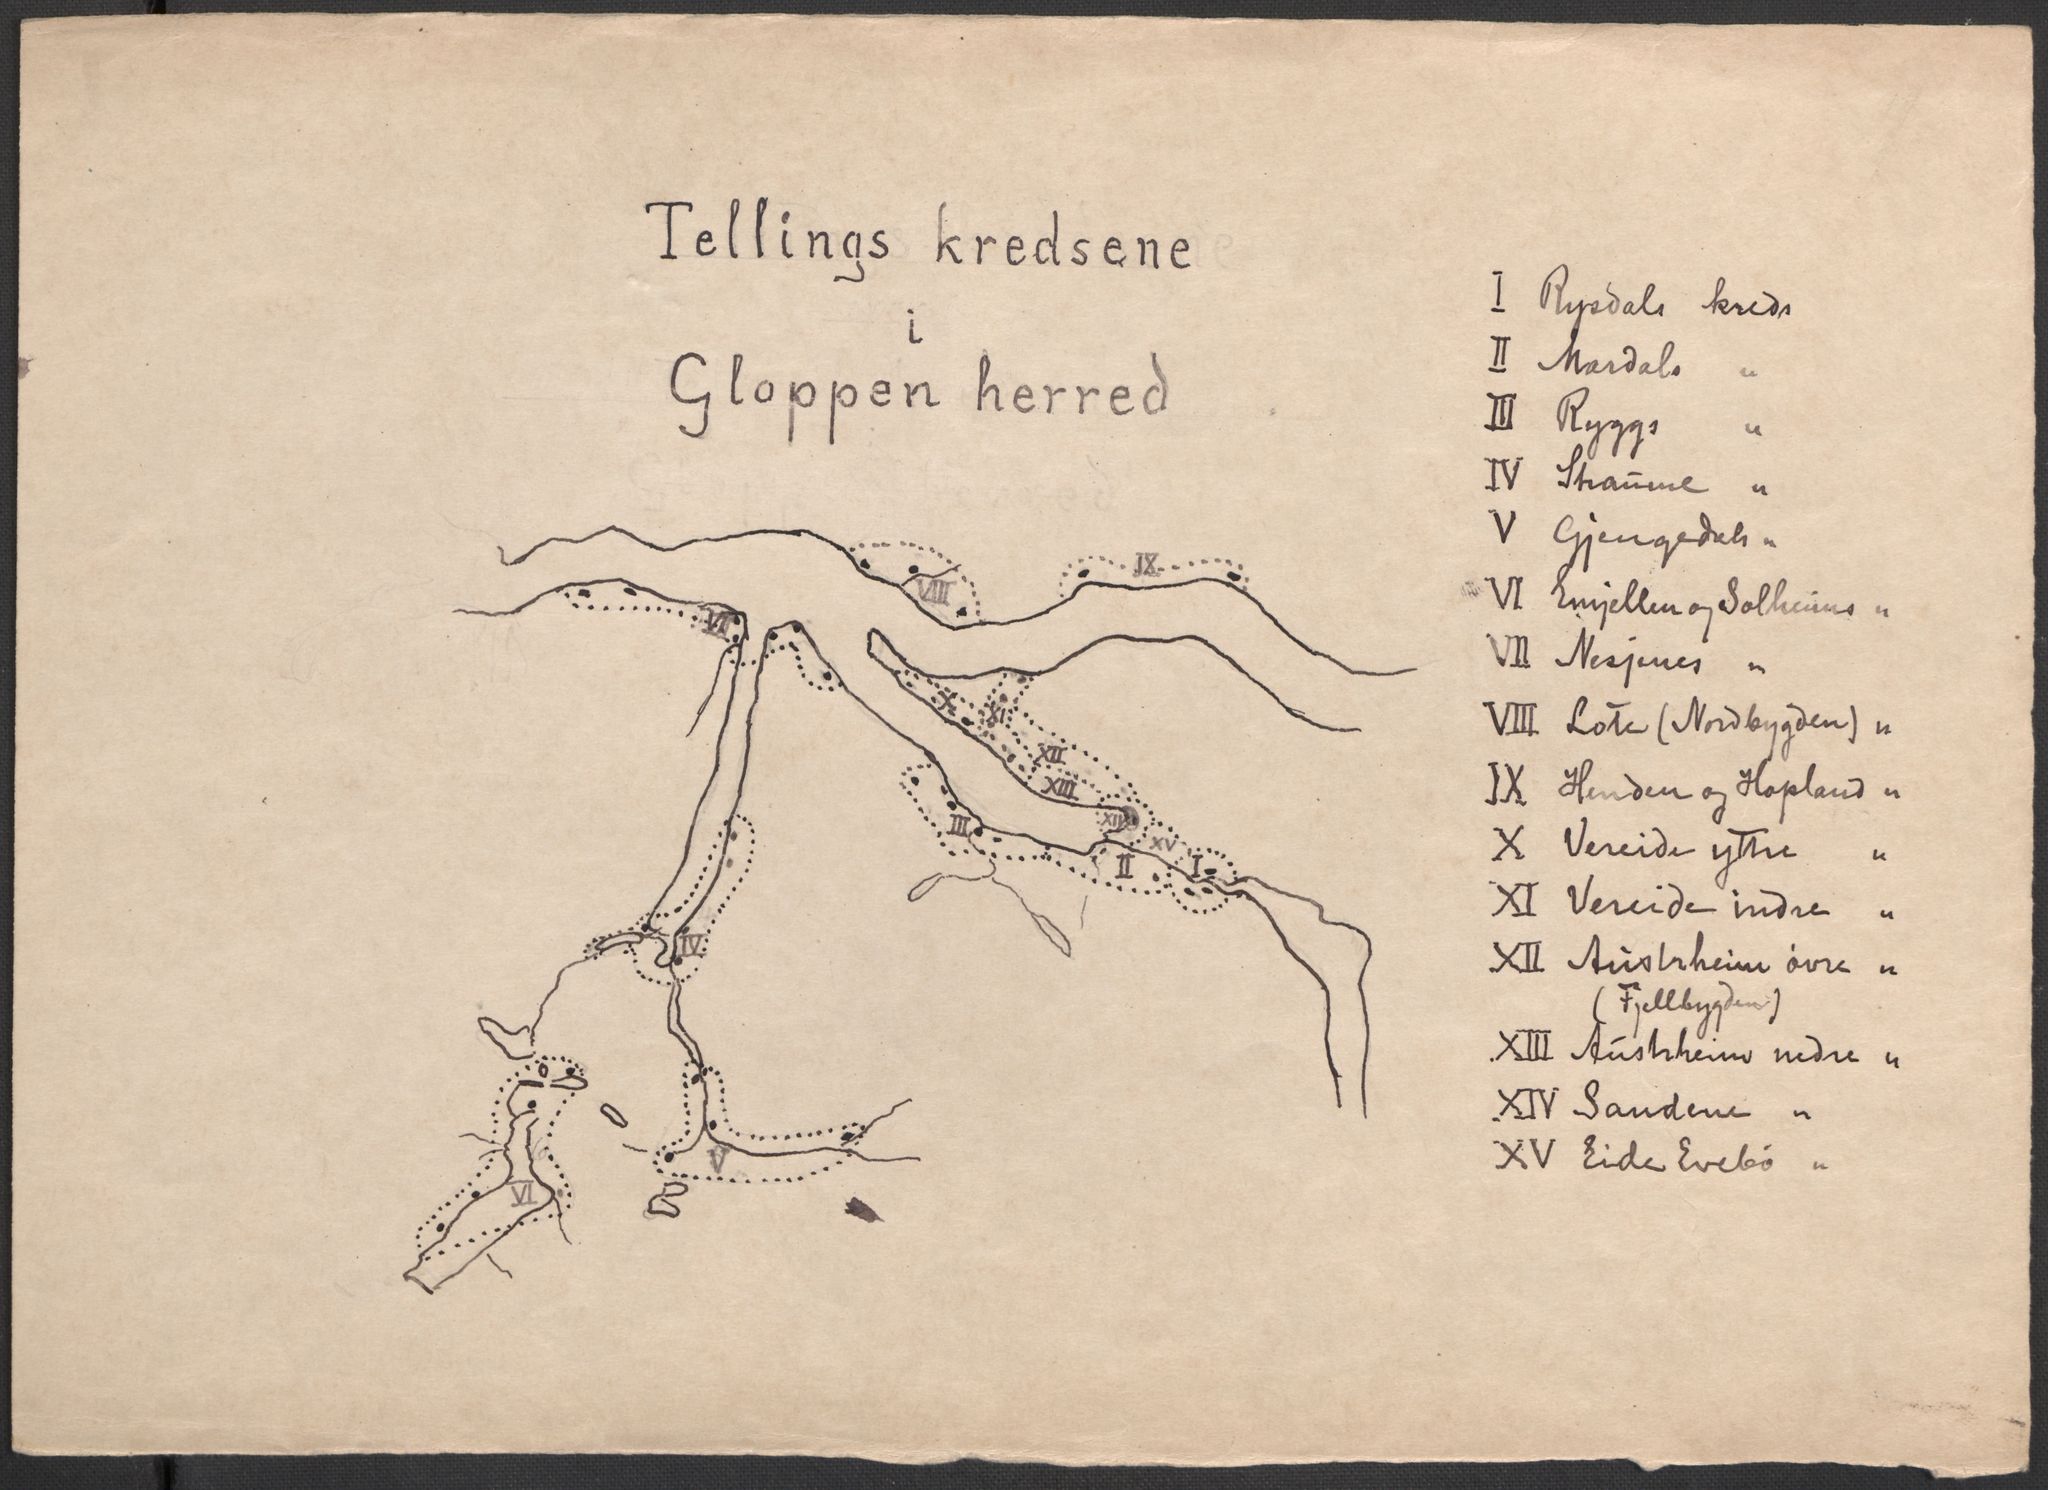 Tellings kredsene
i
Gloppen herred
I Rysdals kreds
II Mardals "
III Ryggs "
IV Straume "
V Gjengedals "
VI Emjellen og Solheims "
VII Nesjenes "
VIII Lote (Nordbygden) "
IX Henden og Hopland "
X Vereide ytre "
XI Vereide indre "
XII Austrheim övre "
(Fjellbygden)
XIII Austrheim nedre "
XIV Sandene "
XV Eide Evebö "
VIII
IX
VII
X
XI
XII
XIII
XIV
XV
III
II
I
IV
V
VI